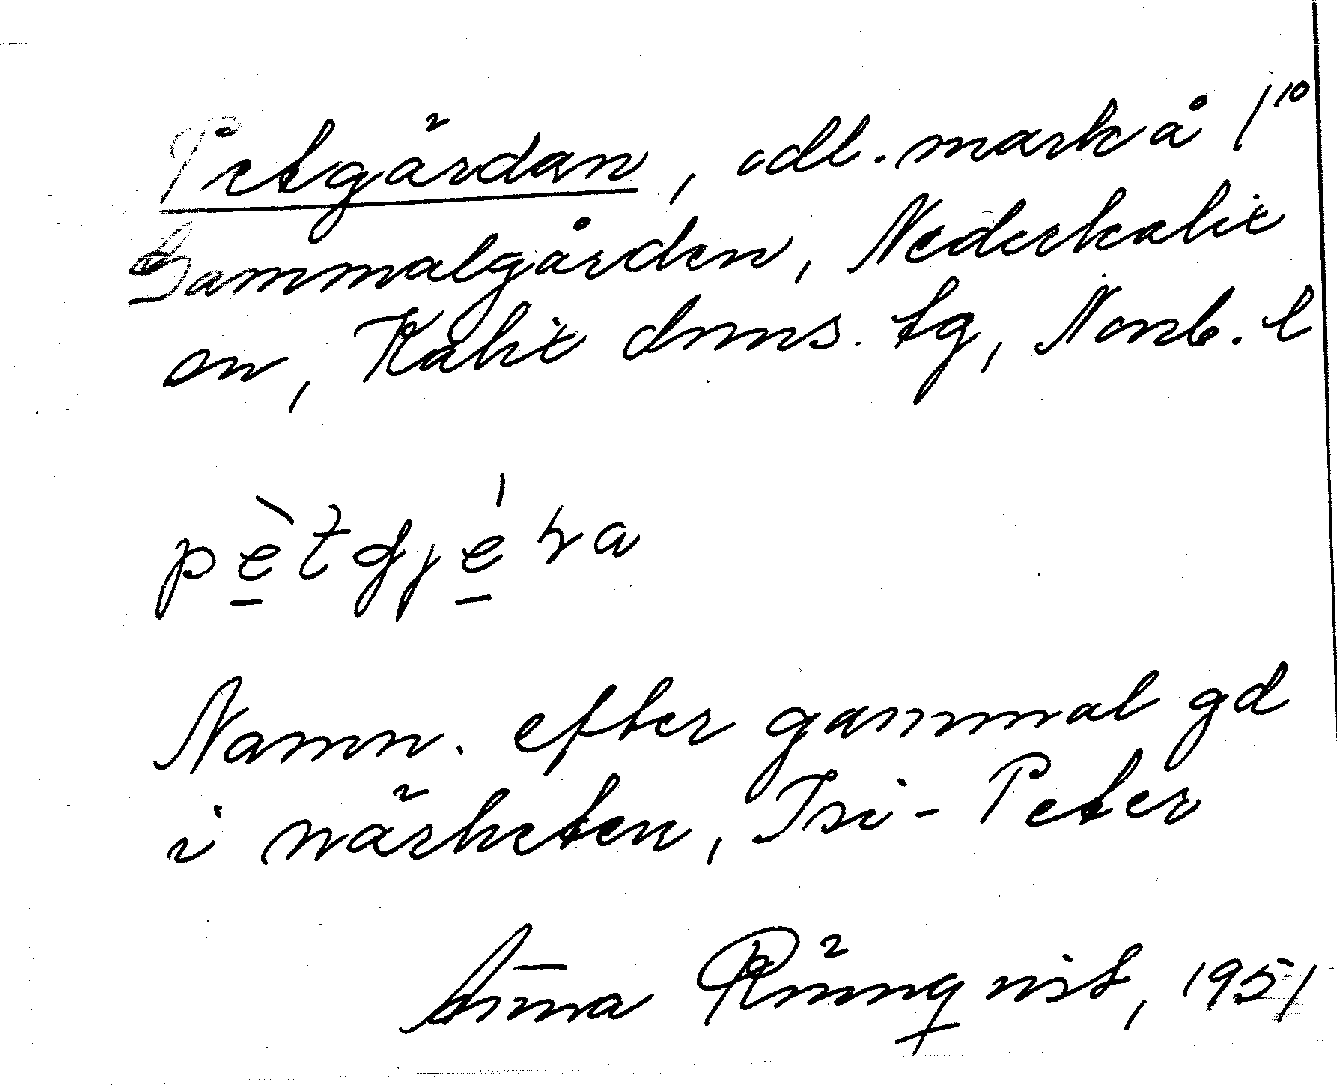 Petgärdan, odl. mark å 1¹⁰
Gammelgården, Nederkalix
sn, Kalix dms. tg, Norrb. l
pètgjéra
Namn. efter gammal gd
i närheten, Isi-Peter
Anna Rönnqvist, 1951